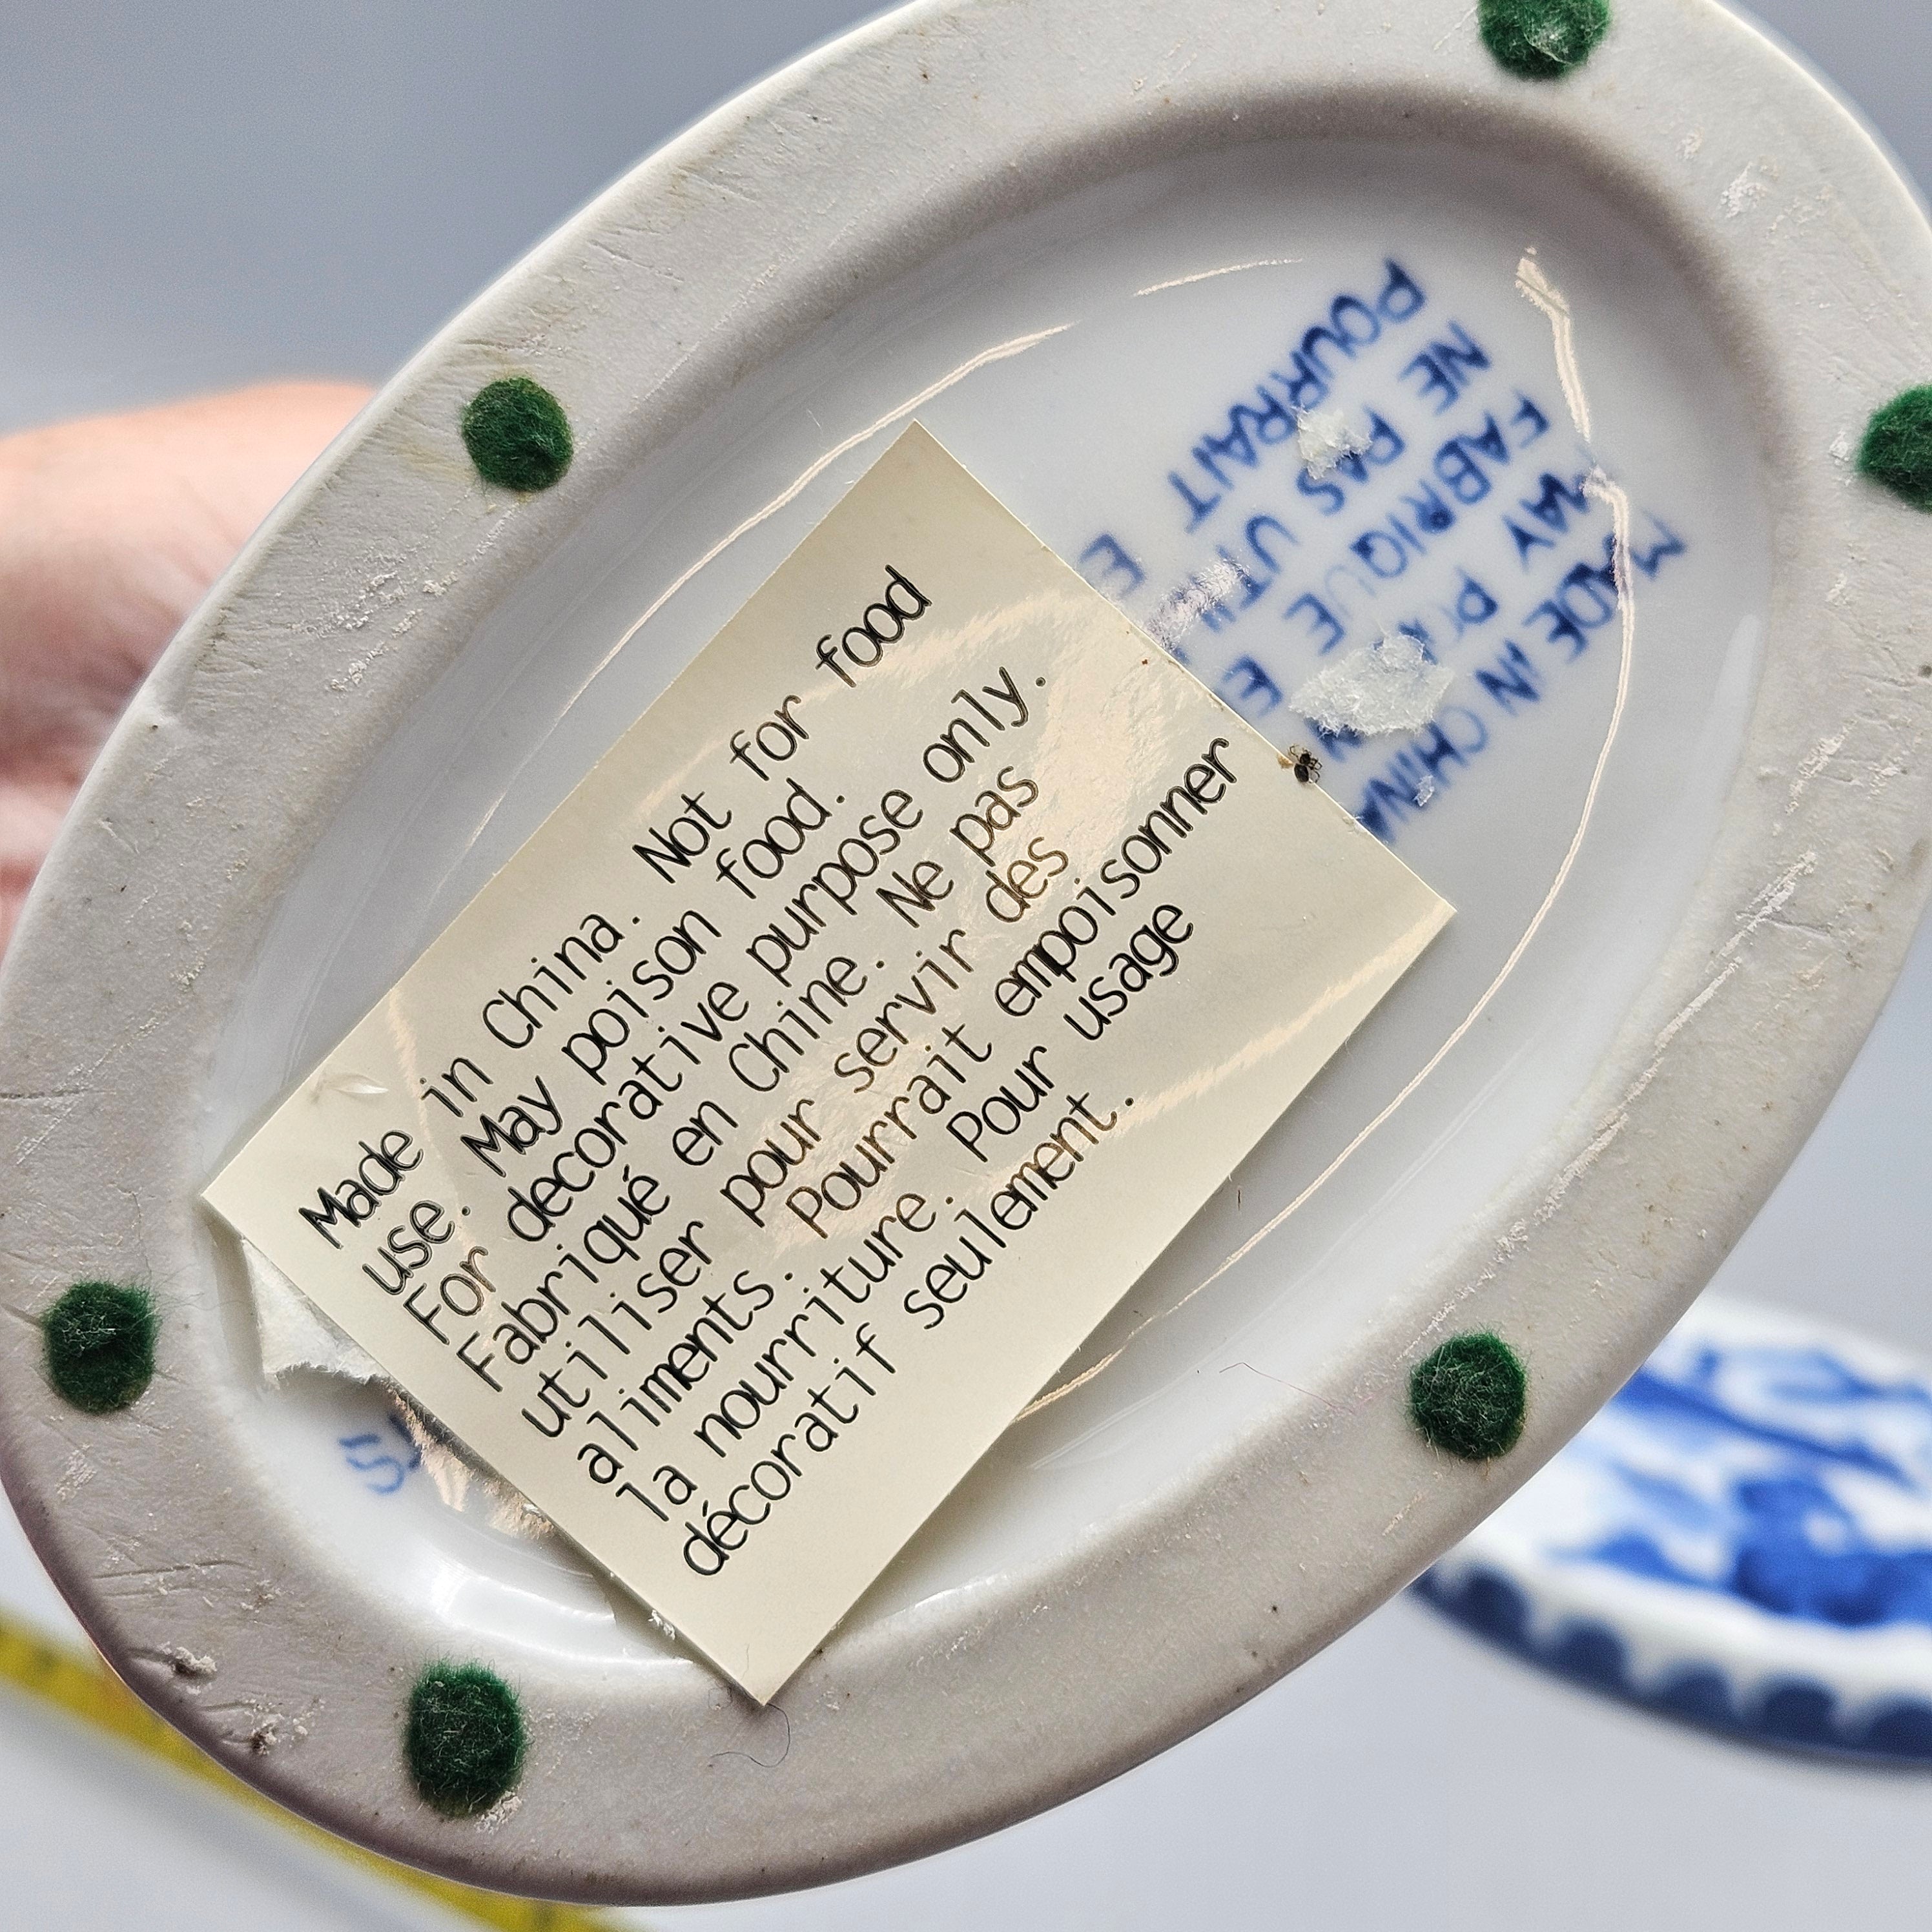 Made in China. Not for food
use. May poison food.
For decorative purpose only.
Fabriqué en Chine. Ne pas
utiliser pour servir des
aliments. Pourrait empoisonner
la nourriture. Pour usage
décoratif seulement.
MADE IN CHINA
MAY
FABRIQUE E
NE PAS
POURRAIT E